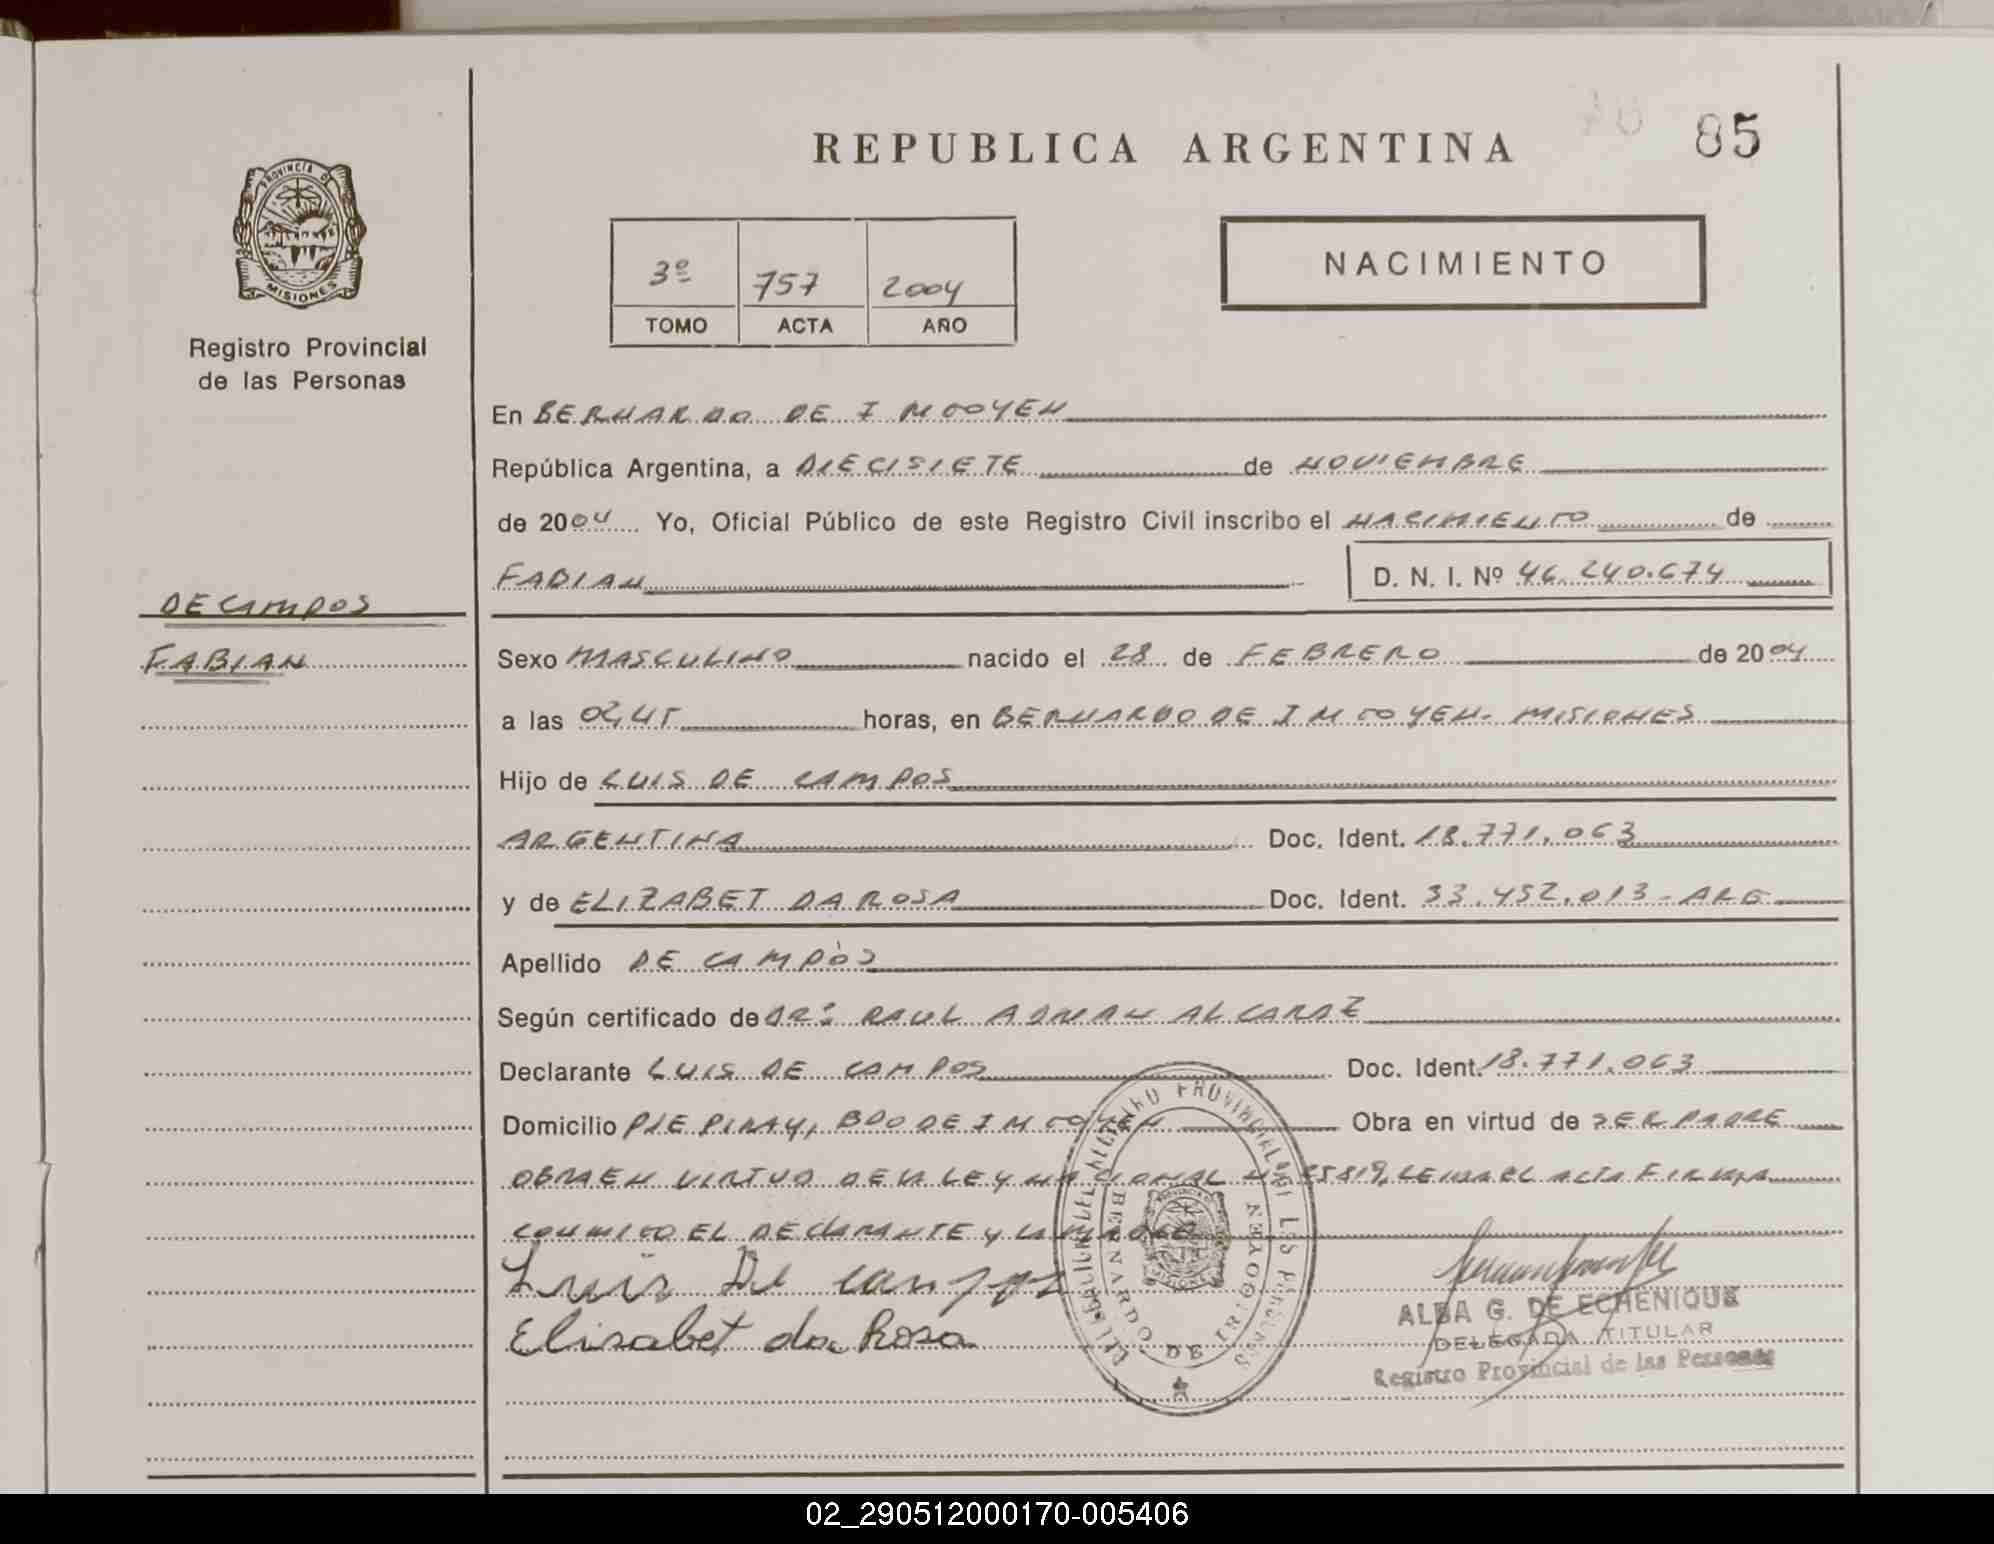 REPUBLICA ARGENTINA
85
PROVINCIA D
MISIONES
Registro Provincial
de las Personas
3º 757 2004
TOMO ACTA AÑO
NACIMIENTO
En BERNARDO DE IRIGOYEN
República Argentina, a DIECISIETE de NOVIEMBRE
de 2004 Yo, Oficial Público de este Registro Civil inscribo el NACIMIENTO de
FABIAN D. N. I. Nº 46.240.674
DE CAMPOS
FABIAN
Sexo MASCULINO nacido el 28 de FEBRERO de 2004
a las 02,45 horas, en BERNARDO DE IRIGOYEN- MISIONES
Hijo de LUIS DE CAMPOS
ARGENTINA Doc. Ident. 18.771.063
y de ELIZABET DA ROSA Doc. Ident. 33.452.013-ARG
Apellido DE CAMPOS
Según certificado de DR: RAUL ADRIAN ALCARAZ
Declarante LUIS DE CAMPOS Doc. Ident. 18.771.063
Domicilio PJE PIRAY, BDO DE IRIGOYEN Obra en virtud de SER PADRE
OBRA EN VIRTUD DE LA LEY NACIONAL Nº 25819, LEIDA EL ACTA FIRMAN
CONMIGO EL DECLARANTE Y LA MADRE
Luis De campos
Elisabet da Rosa
BERNARDO DE IRIGOYEN
ALBA G. DE ECHENIQUE
DELEGADA TITULAR
Registro Provincial de las Personas
02_290512000170-005406